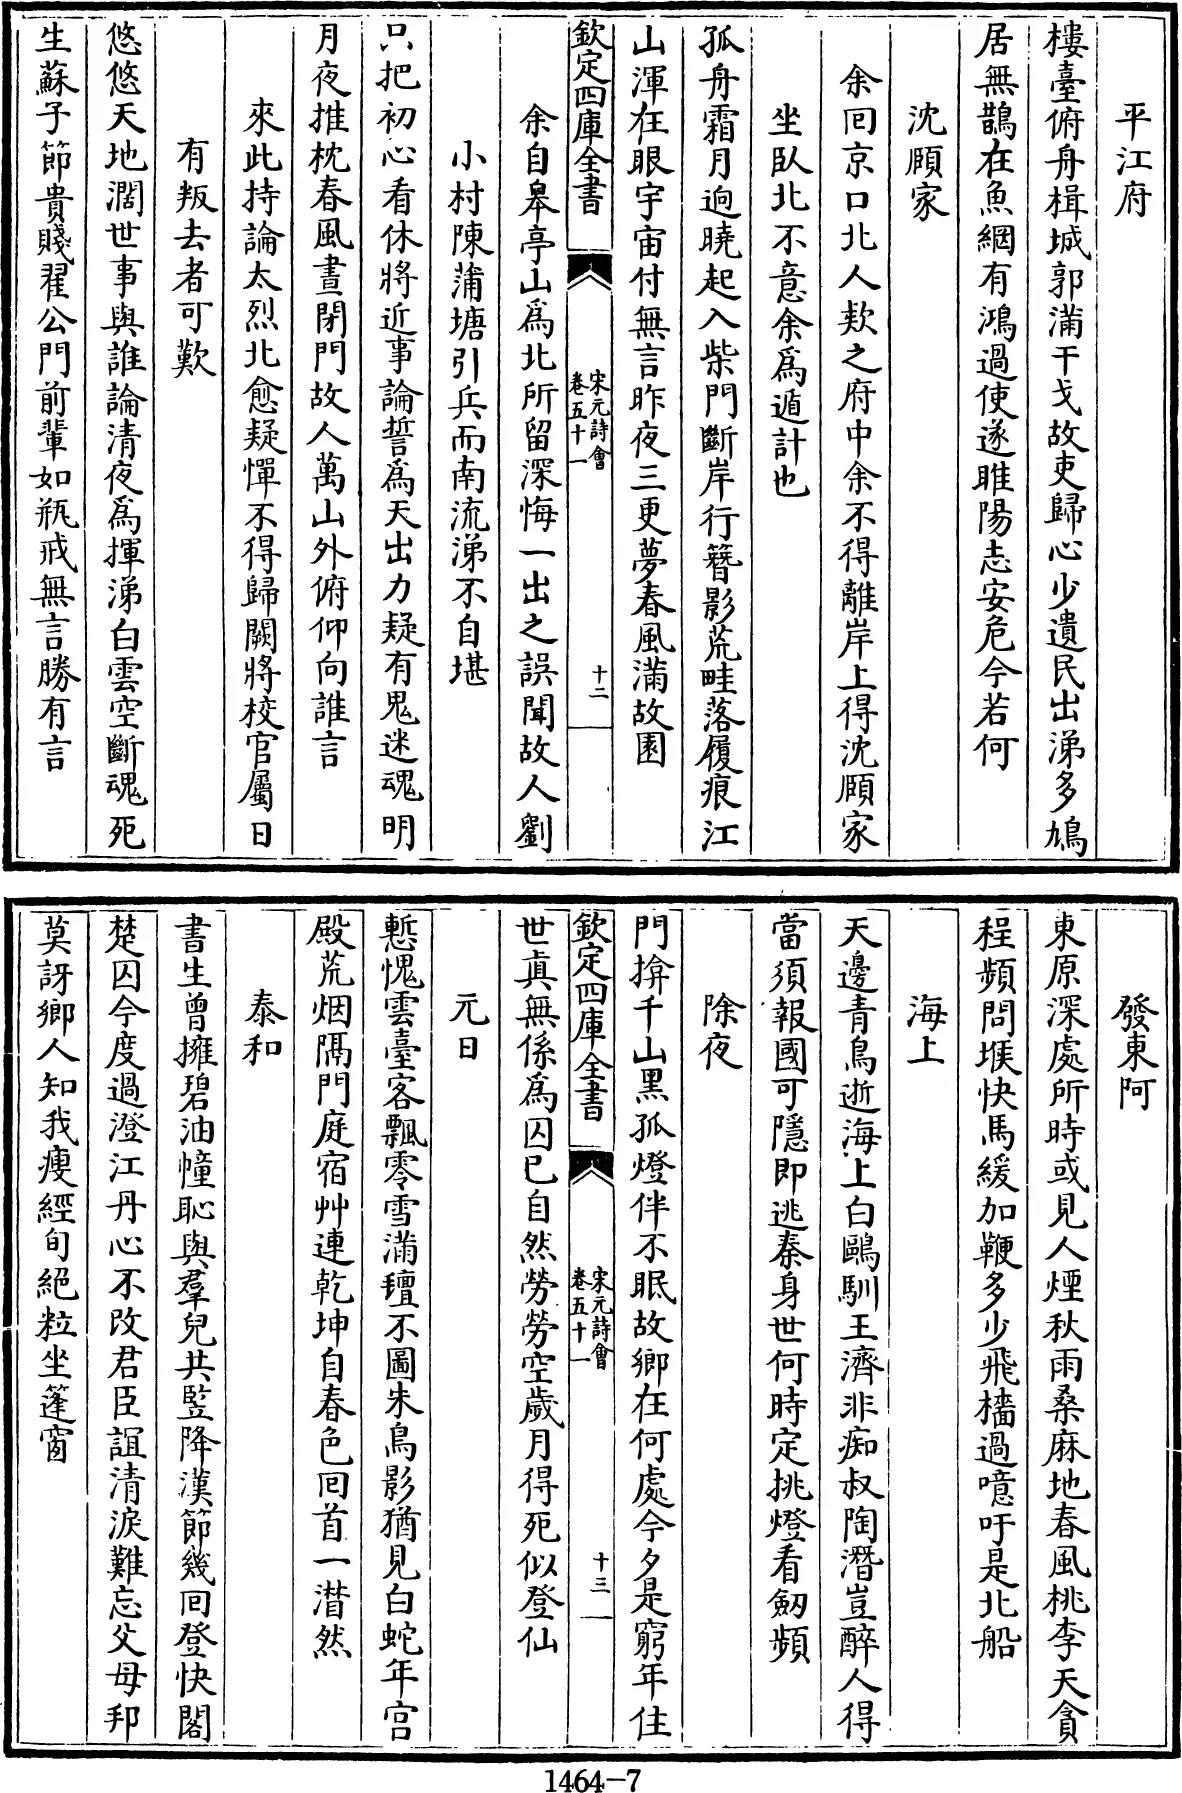 平江府
樓臺俯舟楫城郭滿干戈故吏歸心少遺民出涕多鳩
居無鵲在魚網有鴻過使遂睢陽志安危今若何
沈頥家
余回京口北人欵之府中余不得離岸上得沈頥家
坐臥北不意余爲遁計也
孤舟霜月逈曉起入柴門斷岸行簪影荒畦落履痕江
山渾在眼宇宙付無言昨夜三更夢春風滿故園
欽定四庫全書
宋元詩會
卷五十一
十二
余自皋亭山爲北所留深悔一出之誤聞故人劉
小村陳蒲塘引兵而南流涕不自堪
只把初心看休將近事論誓爲天出力疑有鬼迷魂明
月夜推枕春風晝閉門故人萬山外俯仰向誰言
來此持論太烈北愈疑憚不得歸闕將校官屬日
有叛去者可歎
悠悠天地濶世事與誰論清夜爲揮涕白雲空斷魂死
生蘇子節貴賤翟公門前輩如瓶戒無言勝有言
發東阿
東原深處所時或見人煙秋雨桑麻地春風桃李天貪
程頻問堠快馬緩加鞭多少飛檣過噫吁是北船
海上
天邊青鳥逝海上白鷗馴王濟非痴叔陶潛豈醉人得
當須報國可隱即逃秦身世何時定挑燈看劒頻
除夜
門揜千山黑孤燈伴不眠故鄉在何處今夕是窮年住
欽定四庫全書
宋元詩會
卷五十一
十三
世眞無係爲囚已自然勞勞空歲月得死似登仙
元日
慙愧雲臺客飄零雪滿氊不圖朱鳥影猶見白蛇年宫
殿荒烟隔門庭宿艸連乾坤自春色回首一潸然
泰和
書生曾擁碧油幢恥與羣兒共監降漢節幾回登快閣
楚囚今度過澄江丹心不改君臣誼清淚難忘父母邦
莫訝鄉人知我瘦經旬絕粒坐篷窗
1464—7